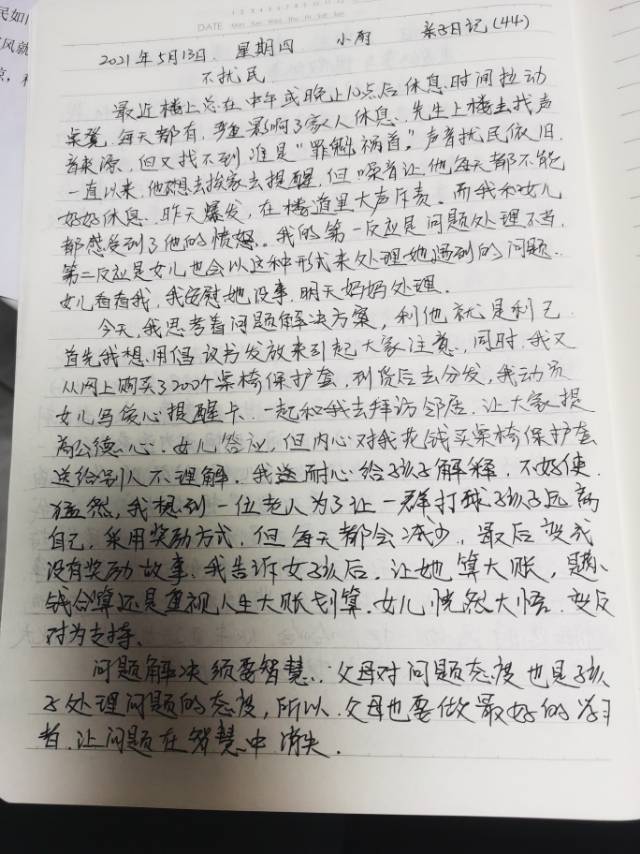 民如
DATE Mon Tue Wed Thu Fri Sat Sun
2021年5月13日. 星期四 小雨 亲子日记(44)
风就
不扰民
最近楼上总在中午或晚上10点后休息时间拉动
桌凳,每天都有,严重影响了家人休息.先生上楼去找声
音来源,但又找不到谁是“罪魁祸首”。声音扰民依旧
一直以来,他想去挨家去提醒,但噪音让他每天都不能
好好休息..昨天爆发,在楼道里大声斥责.而我和女儿
都感受到了他的愤怒.我的第一反应是问题处理不当.
第二反应是女儿也会以这种形式来处理她遇到的问题.
女儿看看我,我安慰她没事,明天妈妈处理.
今天,我思考着问题解决方案,利他就是利己.
首先我想用倡议书发放来引起大家注意.,同时,我又
从网上购买了200个桌椅保护套,到货后去分发,我动员
女儿写爱心提醒卡.一起和我去拜访邻居.让大家提
高公德心.女儿答应,但内心对我花钱买桌椅保护套
送给别人不理解.我送耐心给孩子解释,不好使.
猛然,我想到一位老人为了让一群打球孩子远离
自己,采用奖励方式,但每天都会减少,最后变成
没有奖励故事.我告诉女孩后.让她算大账,是
钱合算还是重视人生大账划算.女儿恍然大悟.变反
对为支持、
问题解决须要智慧.:父母对问题态度也是孩
子处理问题的态度,所以.父母也要做最好的学习
者.让问题在智慧中消失.